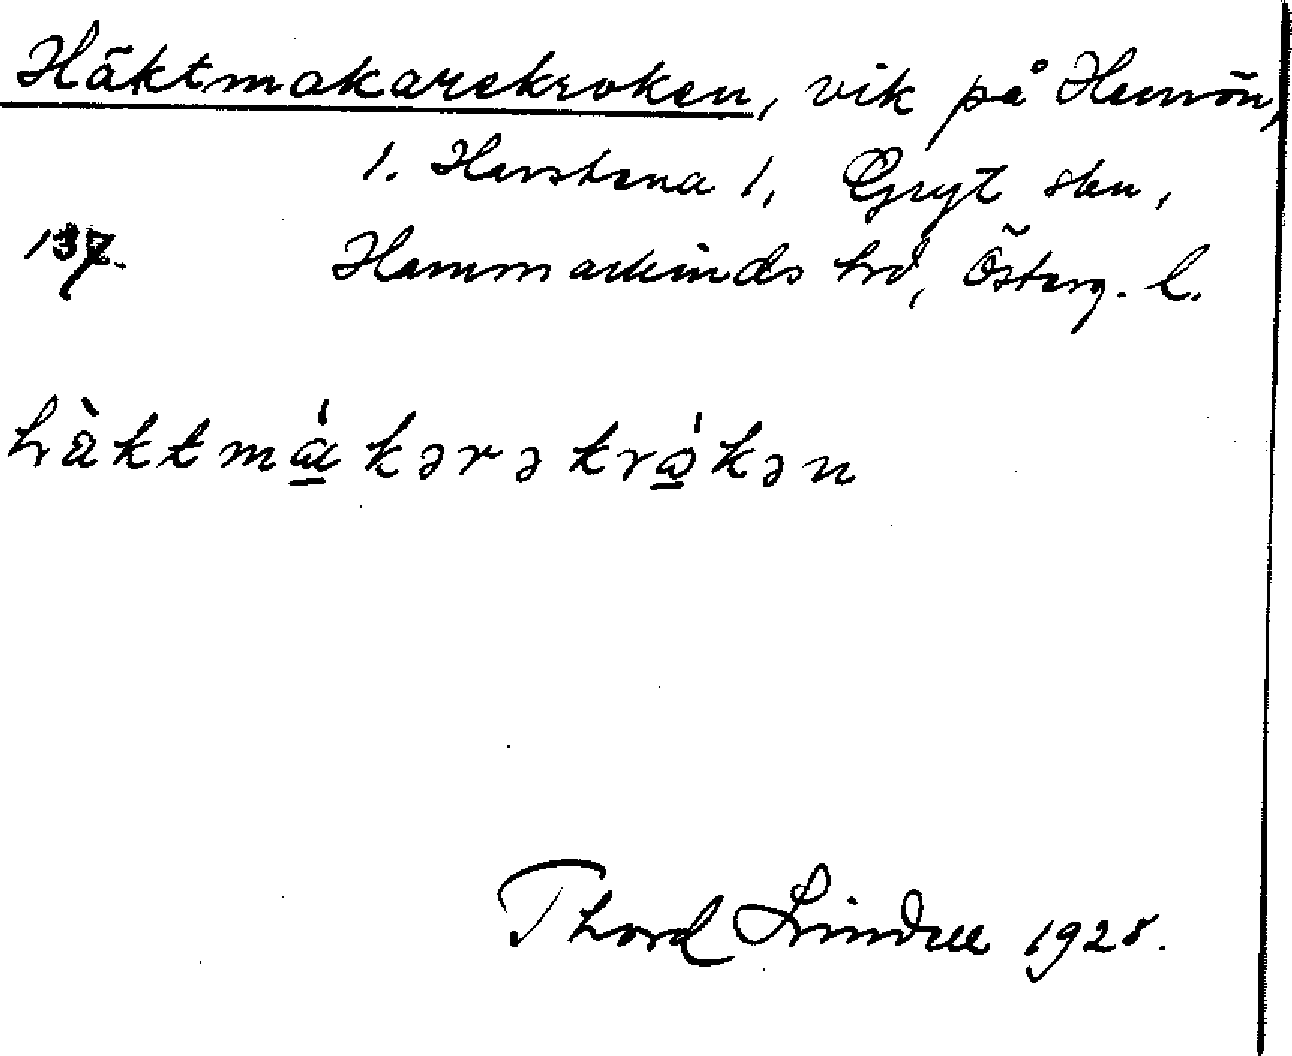 Häktmakarekroken, vik på Hamnön,
1. Harstena 1, Gryt sn,
137. Hammarkinds hd, Österg. l.
hà̈ktmákərəkrókən
Thord Lindell 1928.